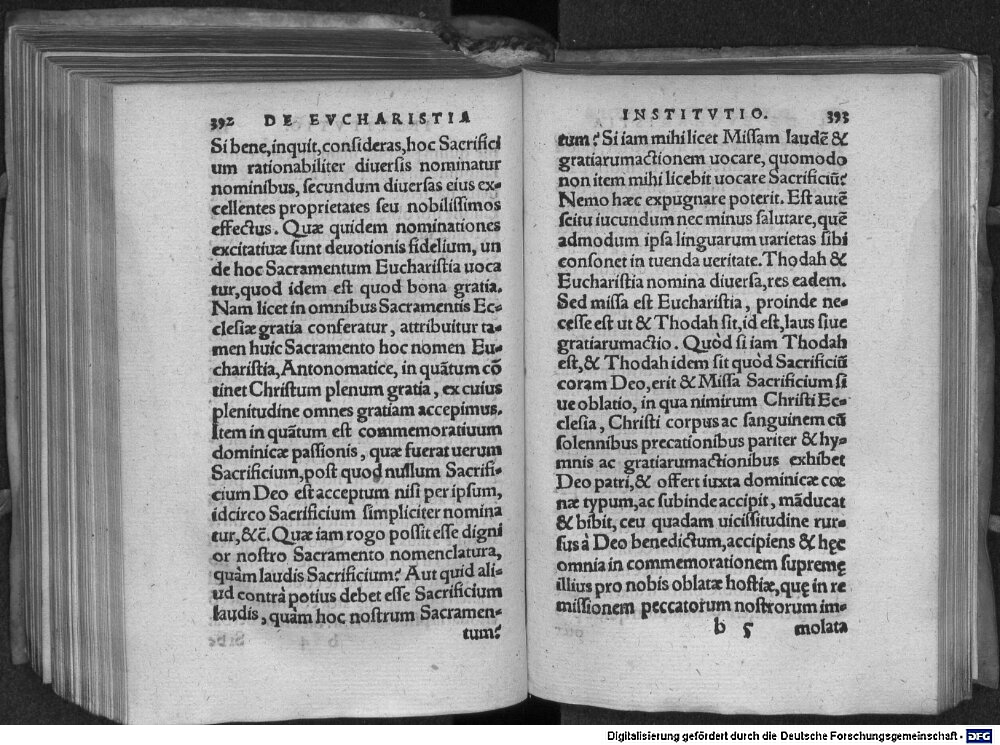 392 DE EVCHARISTIA
Si bene, inquit, consideras, hoc Sacrifici
um rationabiliter diuersis nominatur
nominibus, secundum diuersas eius ex-
cellentes proprietates seu nobilissimos
effectus. Quæ quidem nominationes
excitatiuæ sunt deuotionis fidelium, un
de hoc Sacramentum Eucharistia uoca
tur, quod idem est quod bona gratia.
Nam licet in omnibus Sacramentis Ec-
clesiæ gratia conferatur, attribuitur ta-
men huic Sacramento hoc nomen Eu-
charistia, Antonomatice, in quãtum cõ
tinet Christum plenum gratia, ex cuius
plenitudine omnes gratiam accepimus.
Item in quãtum est commemoratiuum
dominicæ passionis, quæ fuerat uerum
Sacrificium, post quod nullum Sacrifi-
cium Deo est acceptum nisi per ipsum,
idcirco Sacrificium simpliciter nomina
tur, &c̃. Quæ iam rogo possit esse digni
or nostro Sacramento nomenclatura,
quàm laudis Sacrificium? Aut quid ali-
ud contrà potius debet esse Sacrificium
laudis, quàm hoc nostrum Sacramen-
tum?
INSTITVTIO. 393
tum? Si iam mihi licet Missam laudẽ &
gratiarumactionem uocare, quomodo
non item mihi licebit uocare Sacrificiũ?
Nemo hæc expugnare poterit. Est autẽ
scitu iucundum nec minus salutare, quẽ
admodum ipsa linguarum uarietas sibi
consonet in tuenda ueritate. Thodah &
Eucharistia nomina diuersa, res eadem.
Sed missa est Eucharistia, proinde ne-
cesse est ut & Thodah sit, id est, laus siue
gratiarumactio. Quòd si iam Thodah
est, & Thodah idem sit quòd Sacrificiũ
coram Deo, erit & Missa Sacrificium si
ue oblatio, in qua nimirum Christi Ec-
clesia, Christi corpus ac sanguinem cũ
solennibus precationibus pariter & hy-
mnis ac gratiarumactionibus exhibet
Deo patri, & offert iuxta dominicæ cœ
næ typum, ac subinde accipit, mãducat
& bibit, ceu quadam uicissitudine rur-
sus à Deo benedictum, accipiens & hęc
omnia in commemorationem supremę
illius pro nobis oblatæ hostiæ, quę in re
missionem peccatorum nostrorum im-
b 5 molata
Digitalisierung gefördert durch die Deutsche Forschungsgemeinschaft - DFG